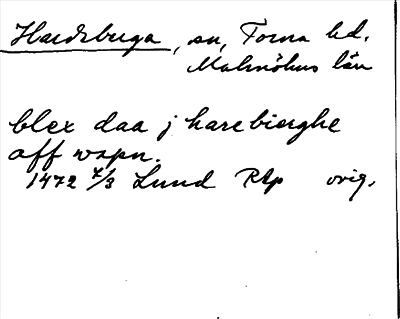 Hardeberga, sn, Torna hd.
Malmöhus län
blex daa j harebierghe
aff wapn.
1472 7/3 Lund RAp orig.